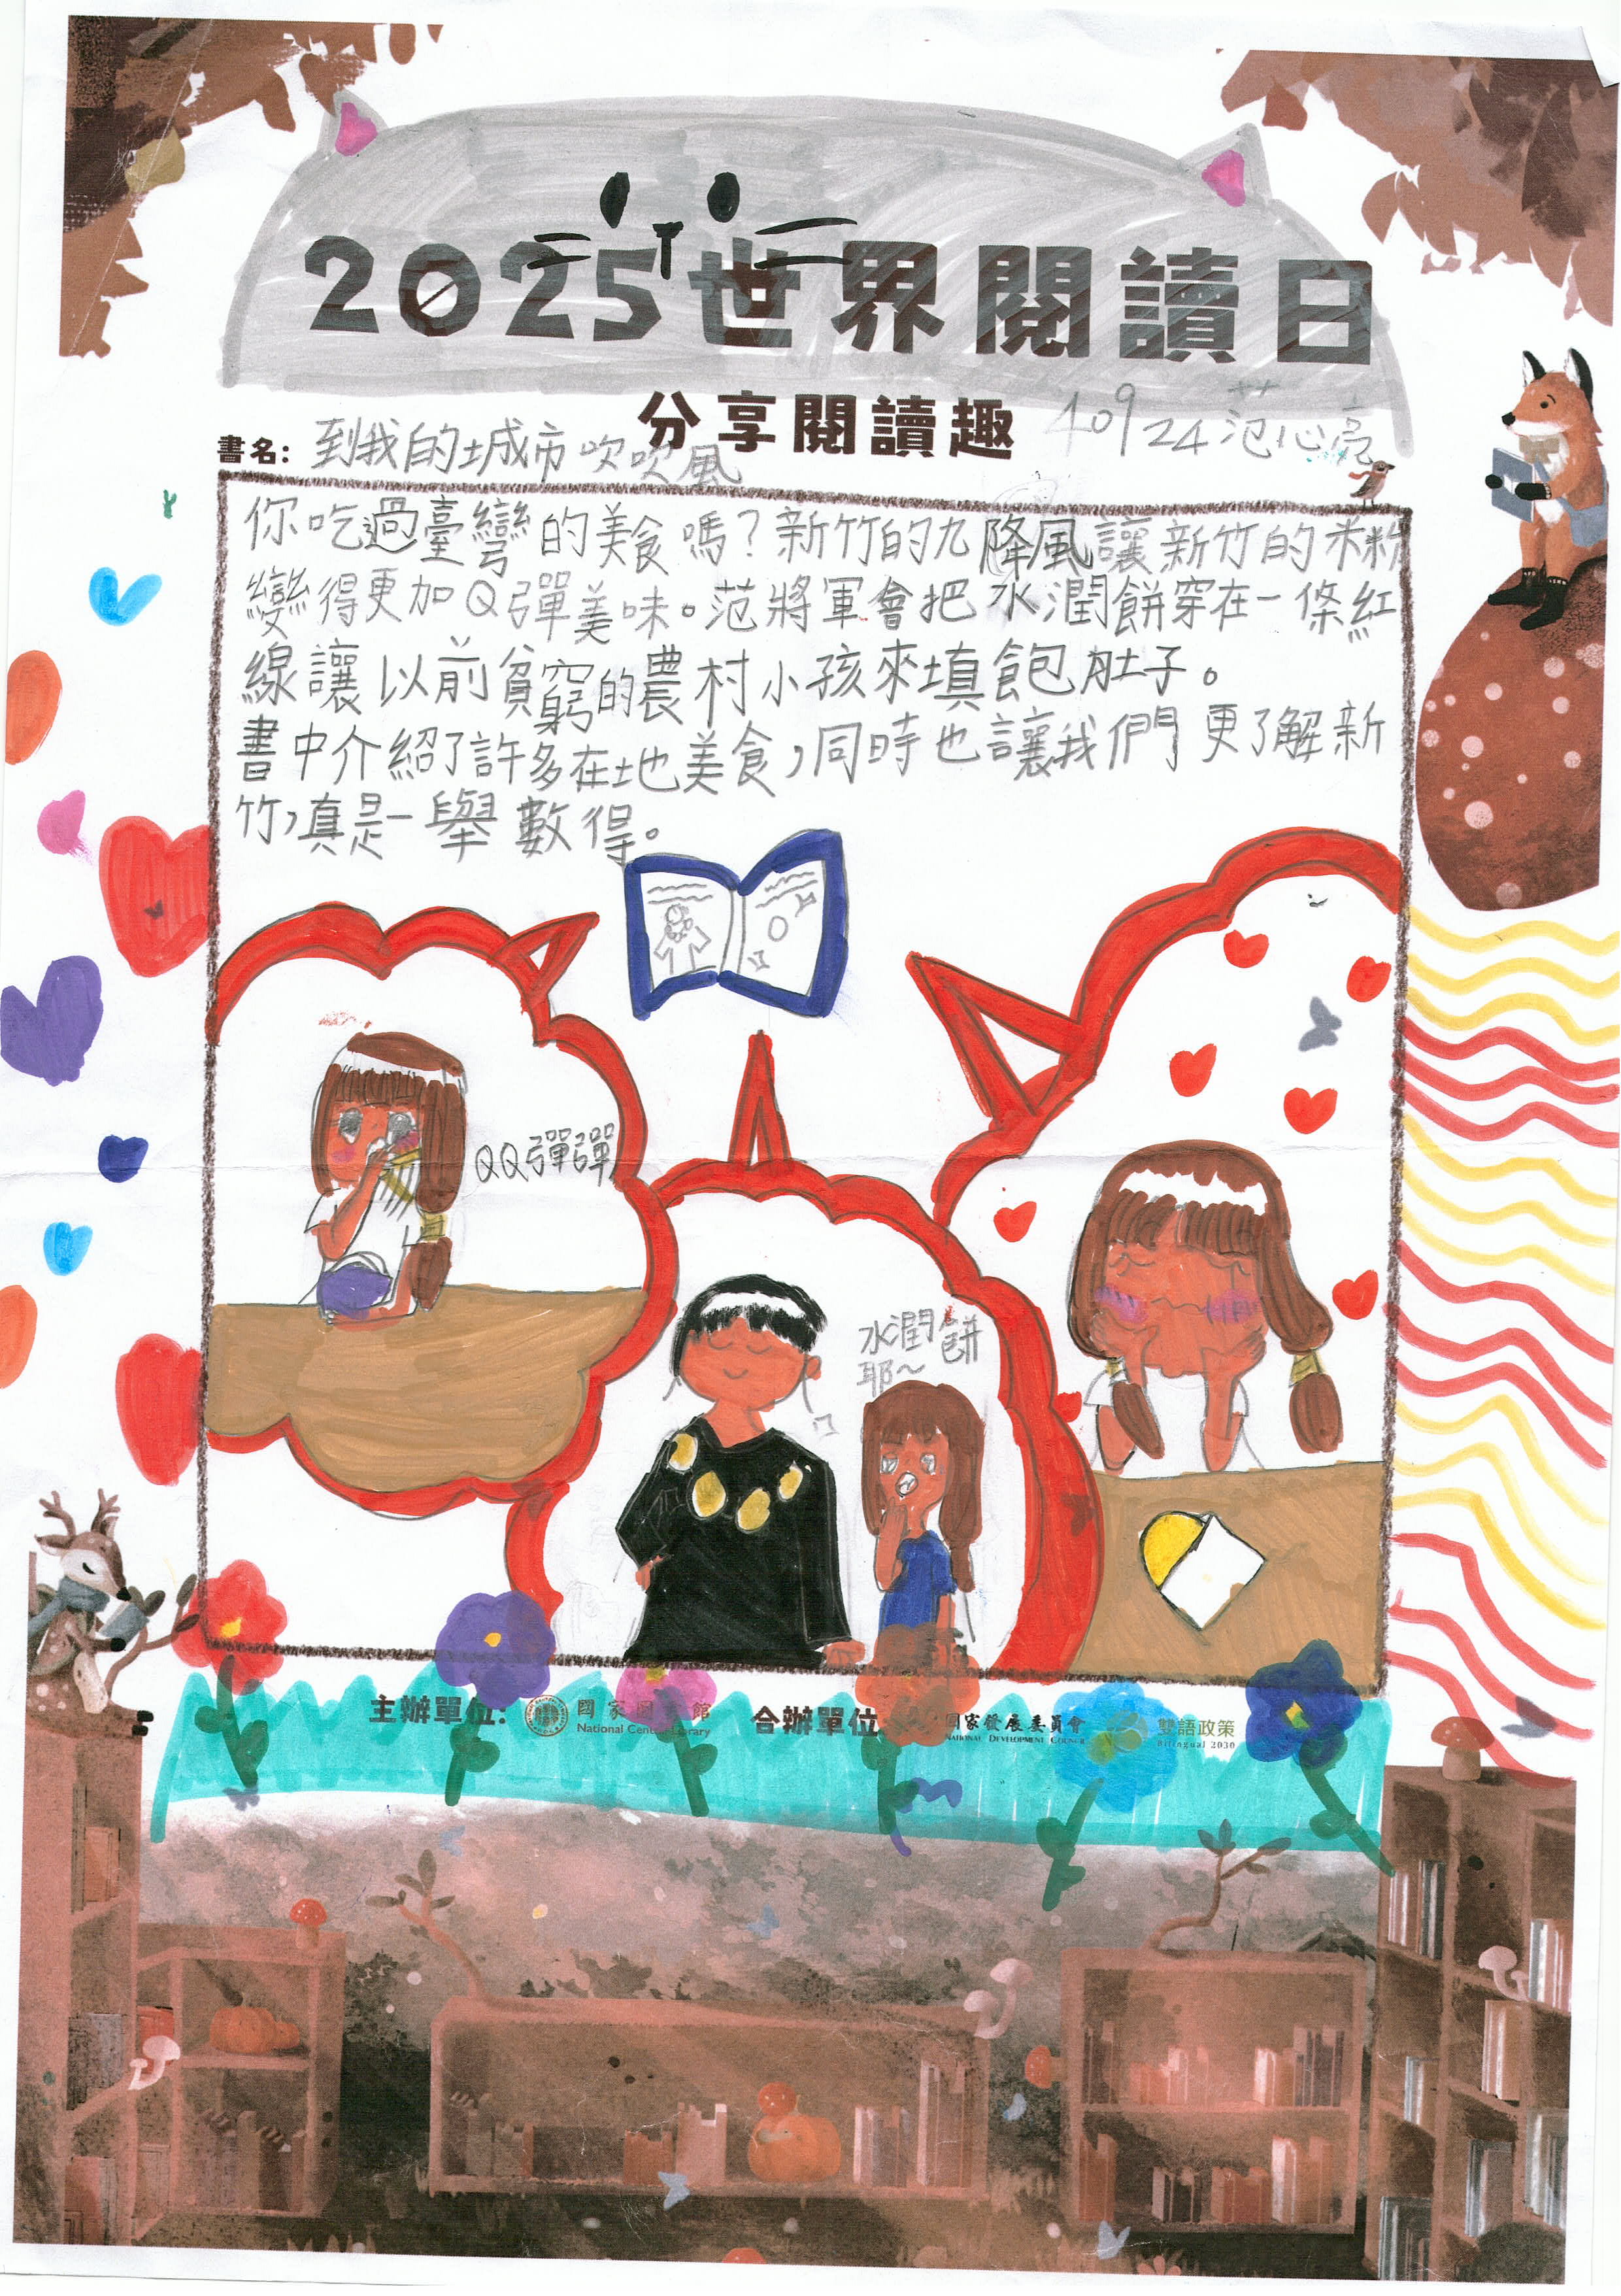 2025世界閱讀日
分享閱讀趣
40924 范心亮
書名: 到我的城市吹吹風
你吃過臺彎的美食嗎？新竹的九降風讓新竹的米粉
變得更加Q彈美味。范將軍會把水潤餅穿在一條紅
線讓以前貧窮的農村小孩來填飽肚子。
書中介紹了許多在地美食，同時也讓我們更了解新
竹，真是一舉數得。
QQ彈彈
水潤餅
耶～
主辦單位:
國家圖書館
National Central Library
合辦單位
國家發展委員會
NATIONAL DEVELOPMENT COUNCIL
雙語政策
Bilingual 2030